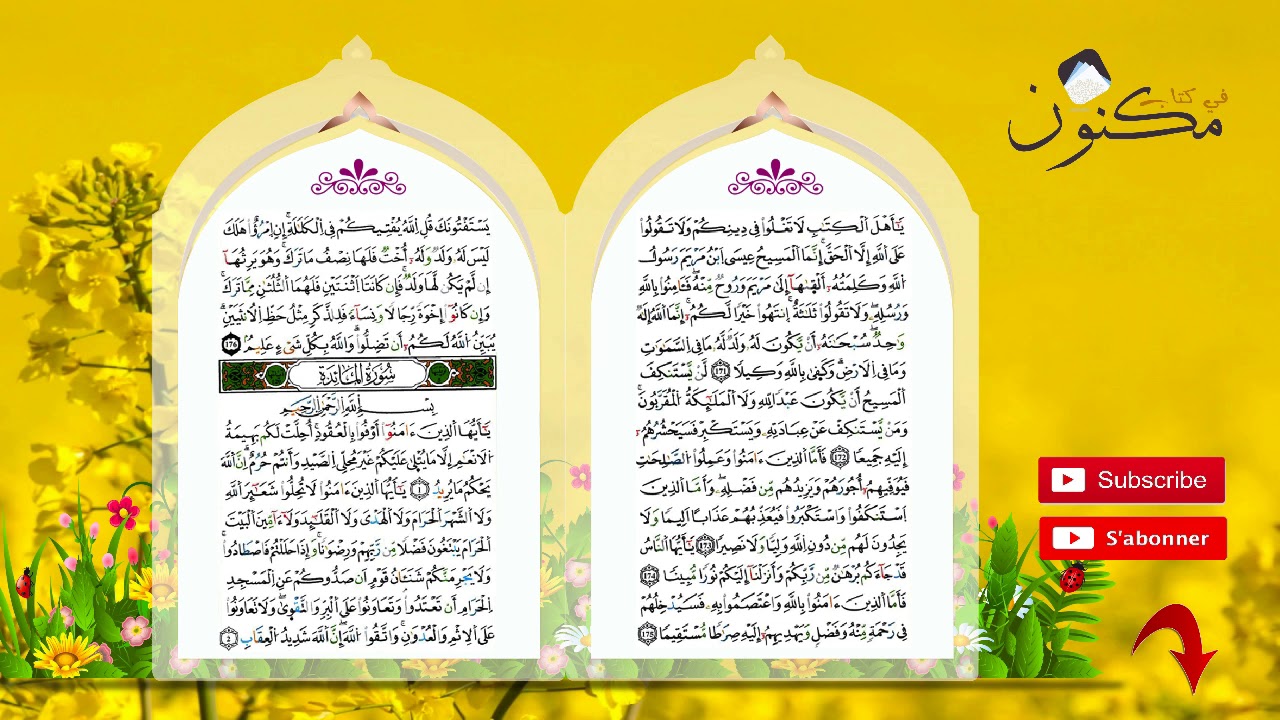 في كتاب
مكنون
يَٰٓأَهْلَ اَلْكِتَٰبِ لَا تَغْلُواْ فِي دِينِكُمْ وَلَا تَقُولُواْ
عَلَى اَللَّهِ إِلَّا اَلْحَقَّ إِنَّمَا اَلْمَسِيحُ عِيسَى اَبْنُ مَرْيَمَ رَسُولُ
اُللَّهِ وَكَلِمَتُهُۥٓ أَلْقَىٰهَآ إِلَىٰ مَرْيَمَ وَرُوحٌ مِّنْهُ فَـَٔامِنُواْ بِاللَّهِ
وَرُسُلِهِۦ وَلَا تَقُولُواْ ثَلَٰثَةٌ اِنتَهُواْ خَيْرًا لَّكُمُۥٓ إِنَّمَا اَللَّهُ إِلَٰهٌ
وَٰحِدٌ سُبْحَٰنَهُۥٓ أَنْ يَّكُونَ لَهُۥ وَلَدٌ لَّهُۥ مَا فِي اِلسَّمَٰوَٰتِ
وَمَا فِي اِلَارْضِ وَكَفَىٰ بِاللَّهِ وَكِيلًا 171 لَّنْ يَّسْتَنكِفَ
اَلْمَسِيحُ أَنْ يَّكُونَ عَبْدًا لِّلهِ وَلَا اَلْمَلَٰٓئِكَةُ اُلْمُقَرَّبُونَ
وَمَنْ يَّسْتَنكِفْ عَنْ عِبَادَتِهِۦ وَيَسْتَكْبِرْ فَسَيَحْشُرُهُمُۥٓ
إِلَيْهِ جَمِيعًا 172 فَأَمَّا اَلذِينَ ءَامَنُواْ وَعَمِلُواْ اُلصَّٰلِحَٰتِ
فَيُوَفِّيهِمُۥٓ أُجُورَهُمْ وَيَزِيدُهُم مِّن فَضْلِهِۦ وَأَمَّا اَلذِينَ
اَسْتَنكَفُواْ وَاسْتَكْبَرُواْ فَيُعَذِّبُهُمْ عَذَابًا اَلِيمًا وَلَا
يَجِدُونَ لَهُم مِّن دُونِ اِللَّهِ وَلِيًّا وَلَا نَصِيرًا 173 يَٰٓأَيُّهَا اَلنَّاسُ
قَدْ جَآءَكُم بُرْهَٰنٌ مِّن رَّبِّكُمْ وَأَنزَلْنَآ إِلَيْكُمْ نُورًا مُّبِينًا 174
فَأَمَّا اَلذِينَ ءَامَنُواْ بِاللَّهِ وَاعْتَصَمُواْ بِهِۦ فَسَيُدْخِلُهُمْ
فِي رَحْمَةٍ مِّنْهُ وَفَضْلٍ وَيَهْدِيهِمُۥٓ إِلَيْهِ صِرَٰطًا مُّسْتَقِيمًا 175
يَسْتَفْتُونَكَ قُلِ اِللَّهُ يُفْتِيكُمْ فِي اِلْكَلَٰلَةِ إِنِ اِمْرُؤٌاْ هَلَكَ
لَيْسَ لَهُۥ وَلَدٌ وَلَهُۥٓ أُخْتٌ فَلَهَا نِصْفُ مَا تَرَكَ وَهُوَ يَرِثُهَآ
إِن لَّمْ يَكُن لَّهَا وَلَدٌ فَإِن كَانَتَا اَثْنَتَيْنِ فَلَهُمَا اَلثُّلُثَٰنِ مِمَّا تَرَكَ
وَإِن كَانُوٓاْ إِخْوَةً رِّجَالًا وَنِسَآءً فَلِلذَّكَرِ مِثْلُ حَظِّ اِلُانثَيَيْنِ
يُبَيِّنُ اُللَّهُ لَكُمُۥٓ أَن تَضِلُّواْ وَاللَّهُ بِكُلِّ شَيْءٍ عَلِيمٌ 176
سُورَةُ المَائِدَة
بِسْمِ اِللَّهِ اِلرَّحْمَٰنِ اِلرَّحِيمِ
يَٰٓأَيُّهَا اَلذِينَ ءَامَنُوٓاْ أَوْفُواْ بِالْعُقُودِ أُحِلَّتْ لَكُم بَهِيمَةُ
اُلَانْعَٰمِ إِلَّا مَا يُتْلَىٰ عَلَيْكُمْ غَيْرَ مُحِلِّي اِلصَّيْدِ وَأَنتُمْ حُرُمٌ إِنَّ اَللَّهَ
يَحْكُمُ مَا يُرِيدُ 1 يَٰٓأَيُّهَا اَلذِينَ ءَامَنُواْ لَا تُحِلُّواْ شَعَٰٓئِرَ اَللَّهِ
وَلَا اَلشَّهْرَ اَلْحَرَامَ وَلَا اَلْهَدْيَ وَلَا اَلْقَلَٰٓئِدَ وَلَآ ءَآمِّينَ اَلْبَيْتَ
اَلْحَرَامَ يَبْتَغُونَ فَضْلًا مِّن رَّبِّهِمْ وَرِضْوَٰنًا وَإِذَا حَلَلْتُمْ فَاصْطَادُواْ
وَلَا يَجْرِمَنَّكُمْ شَنَـَٔانُ قَوْمٍ أَن صَدُّوكُمْ عَنِ اِلْمَسْجِدِ
اِلْحَرَامِ أَن تَعْتَدُواْ وَتَعَاوَنُواْ عَلَى اَلْبِرِّ وَالتَّقْوَىٰ وَلَا تَعَاوَنُواْ
عَلَى اَلِاثْمِ وَالْعُدْوَٰنِ وَاتَّقُواْ اُللَّهَ إِنَّ اَللَّهَ شَدِيدُ اُلْعِقَابِ 2
Subscribe
S'abonner